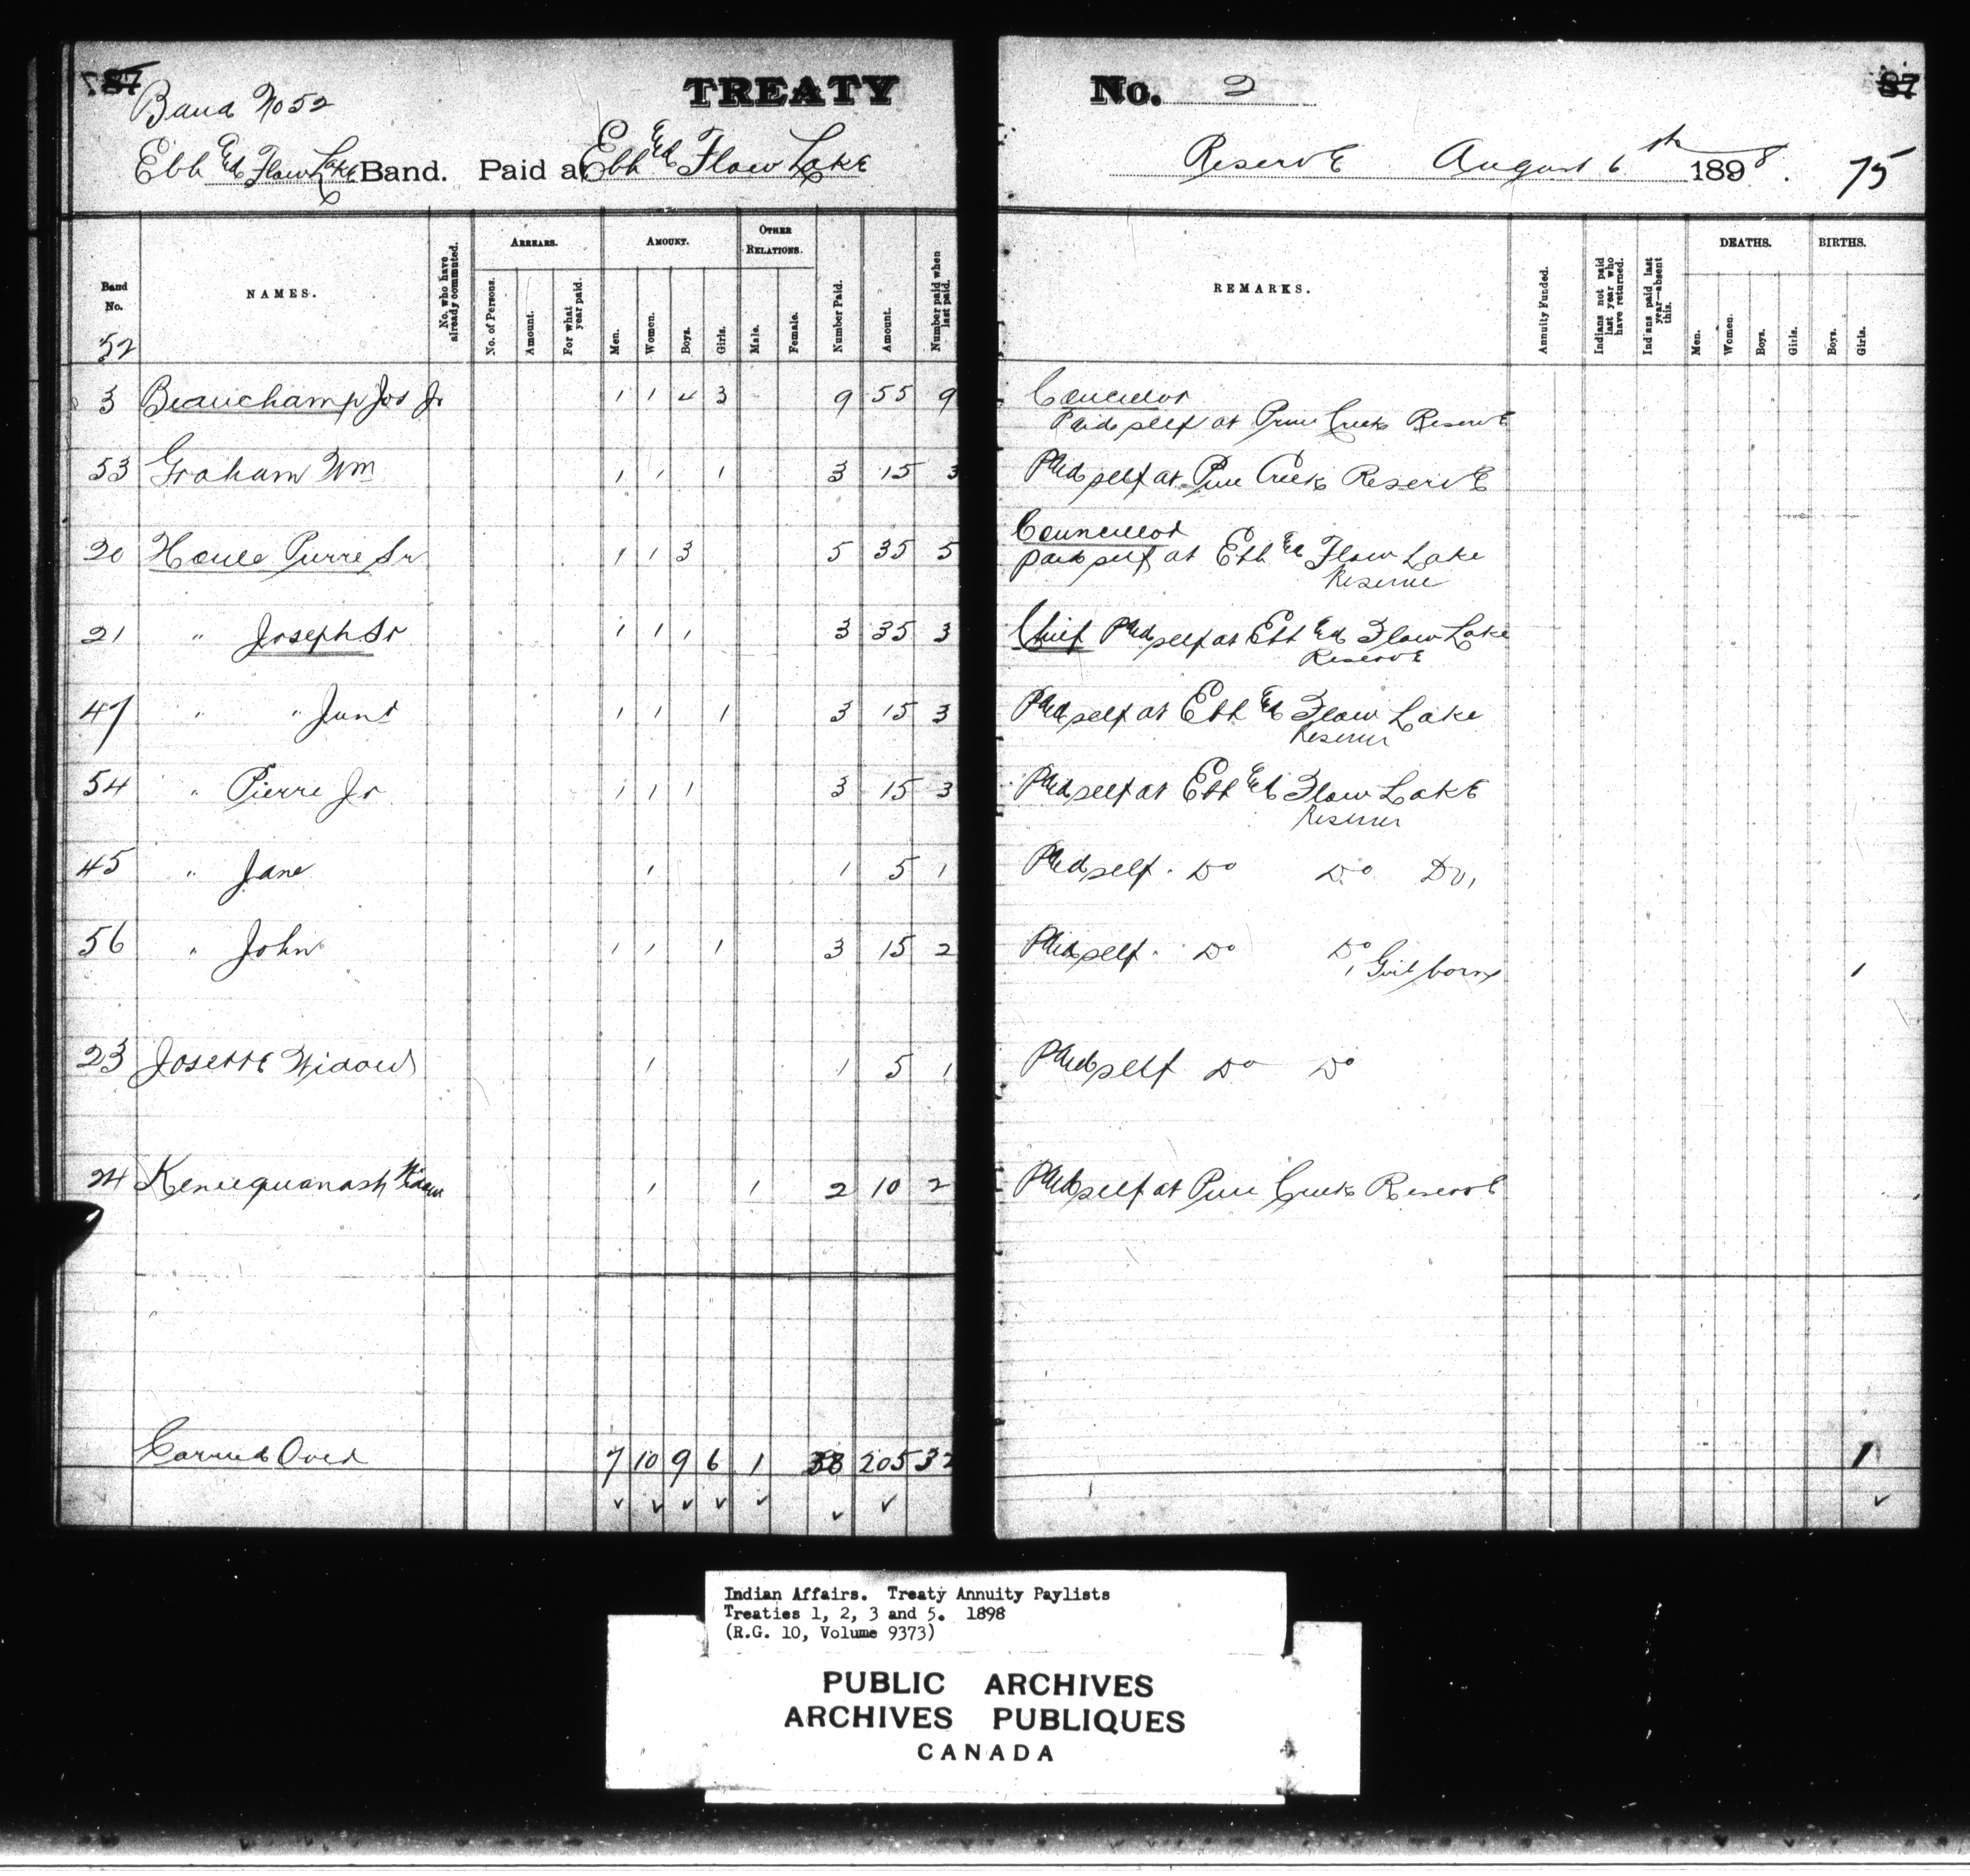 87 TREATY No. 2 87
Band No 52
Ebb & Flow Lake Band. Paid at Ebb & Flow Lake Reserve August 6th 1898. 75
Band No. NAMES. No. who have already commuted. ARREARS. No. of Persons. Amount. For what year paid. AMOUNT. Men. Women. Boys. Girls. OTHER RELATIONS. Male. Female. Number Paid. Amount. Number paid when last paid. REMARKS. Annuity Funded. Indians not paid last year who have returned. Indians paid last year—absent this. DEATHS. Men. Women. Boys. Girls. BIRTHS. Boys. Girls.
52
3 Beauchamp Jos Jr 1 1 4 3 9 55 9 Councillor
Paid self at Pine Creek Reserve
53 Graham Wm 1 1 1 3 15 3 Paid self at Pine Creek Reserve
20 Houle Pierre Sr 1 1 3 5 35 5 Councillor
paid self at Ebb & Flow Lake
Reserve
21 " Joseph Sr 1 1 1 3 35 3 Chief Paid self at Ebb & Flow Lake
Reserve
47 " " Junr 1 1 1 3 15 3 Paid self at Ebb & Flow Lake
Reserve
54 " Pierre Jr 1 1 1 3 15 3 Paid self at Ebb & Flow Lake
Reserve
45 " Jane 1 1 5 1 Paid self. Do Do Do,
56 " John 1 1 1 3 15 2 Paid self. Do Do
1 Girl born 1
23 Josette Widow 1 1 5 1 Paid self Do Do
24 Widow 1 1 2 10 2 Paid self at Pine Creek Reserve
Carried Over 7 10 9 6 1 33 205 32 1
Indian Affairs. Treaty Annuity Paylists
Treaties 1, 2, 3 and 5. 1898
(R.G. 10, Volume 9373)
PUBLIC ARCHIVES
ARCHIVES PUBLIQUES
CANADA